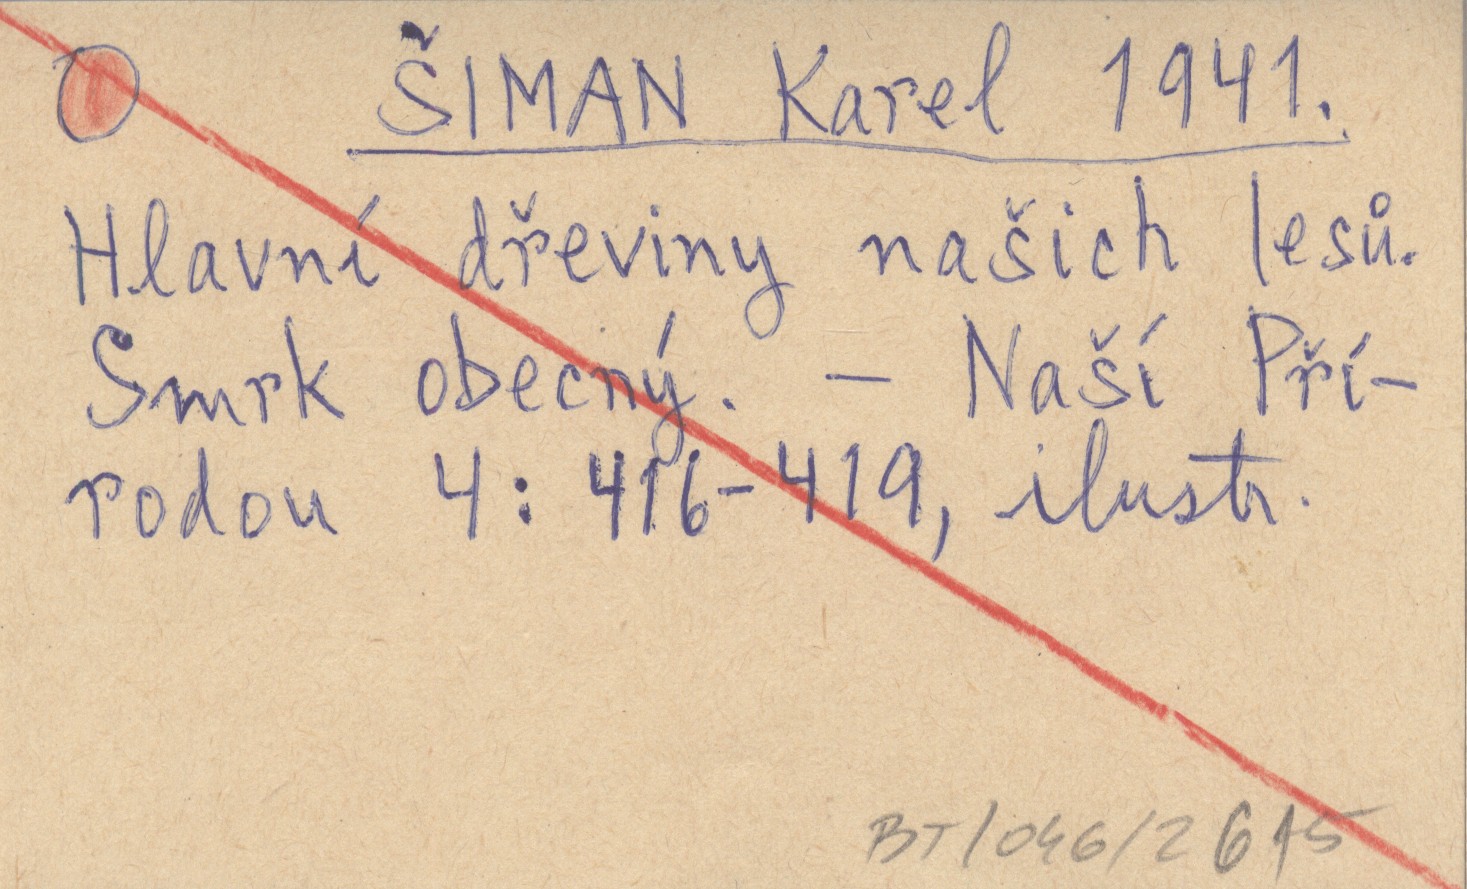 ŠIMAN Karel 1941.
Hlavní dřeviny našich lesů.
Smrk obecný. – Naší Pří-
rodou 4: 416-419, ilustr.
BT/046/2615